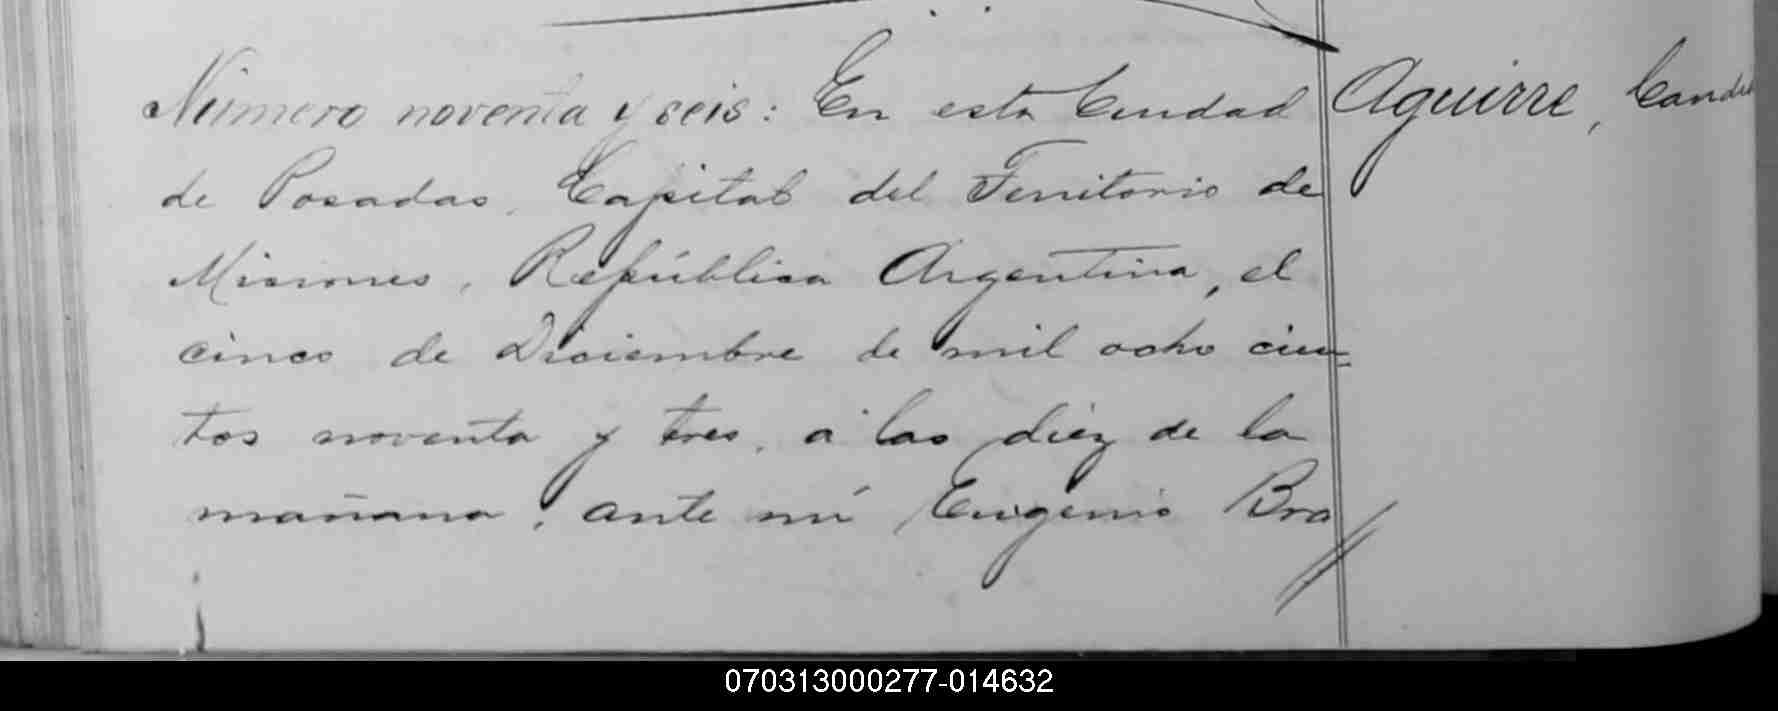 Número noventa y seis: En esta Ciudad
de Posadas, Capital del Territorio de
Misiones, República Argentina, el
cinco de Diciembre de mil ocho cien=
tos noventa y tres, á las diez de la
mañana, ante mí Eugenio Bra//
Aguirre,
070313000277-014632